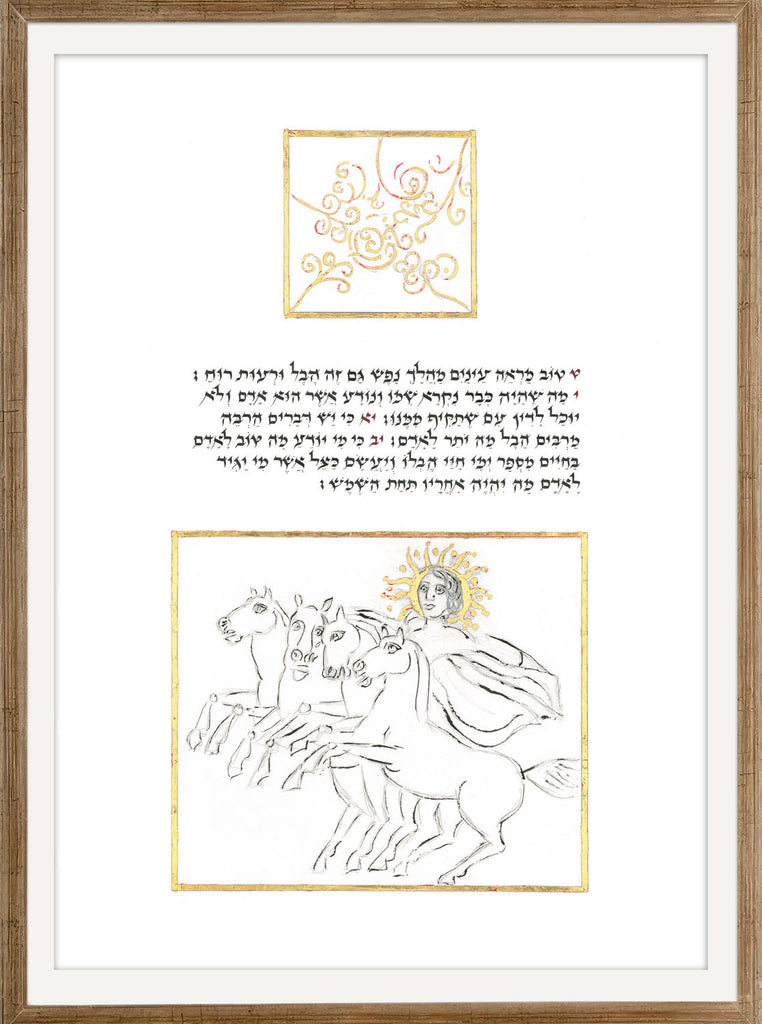 ט טוֹב מַרְאֵה עֵינַיִם מֵהֲלָךְ נָפֶשׁ גַּם זֶה הֶבֶל וּרְעוּת רוּחַ׃
י מַה שֶּׁהָיָה כְּבָר נִקְרָא שְׁמוֹ וְנוֹדָע אֲשֶׁר הוּא אָדָם וְלֹא
יוּכַל לָדִין עִם שֶׁתַּקִּיף מִמֶּנּוּ׃ יא כִּי יֵשׁ דְּבָרִים הַרְבֵּה
מַרְבִּים הָבֶל מַה יֹּתֵר לָאָדָם׃ יב כִּי מִי יוֹדֵעַ מַה טּוֹב לָאָדָם
בַּחַיִּים מִסְפַּר יְמֵי חַיֵּי הֶבְלוֹ וְיַעֲשֵׂם כַּצֵּל אֲשֶׁר מִי יַגִּיד
לָאָדָם מַה יִּהְיֶה אַחֲרָיו תַּחַת הַשָּׁמֶשׁ׃